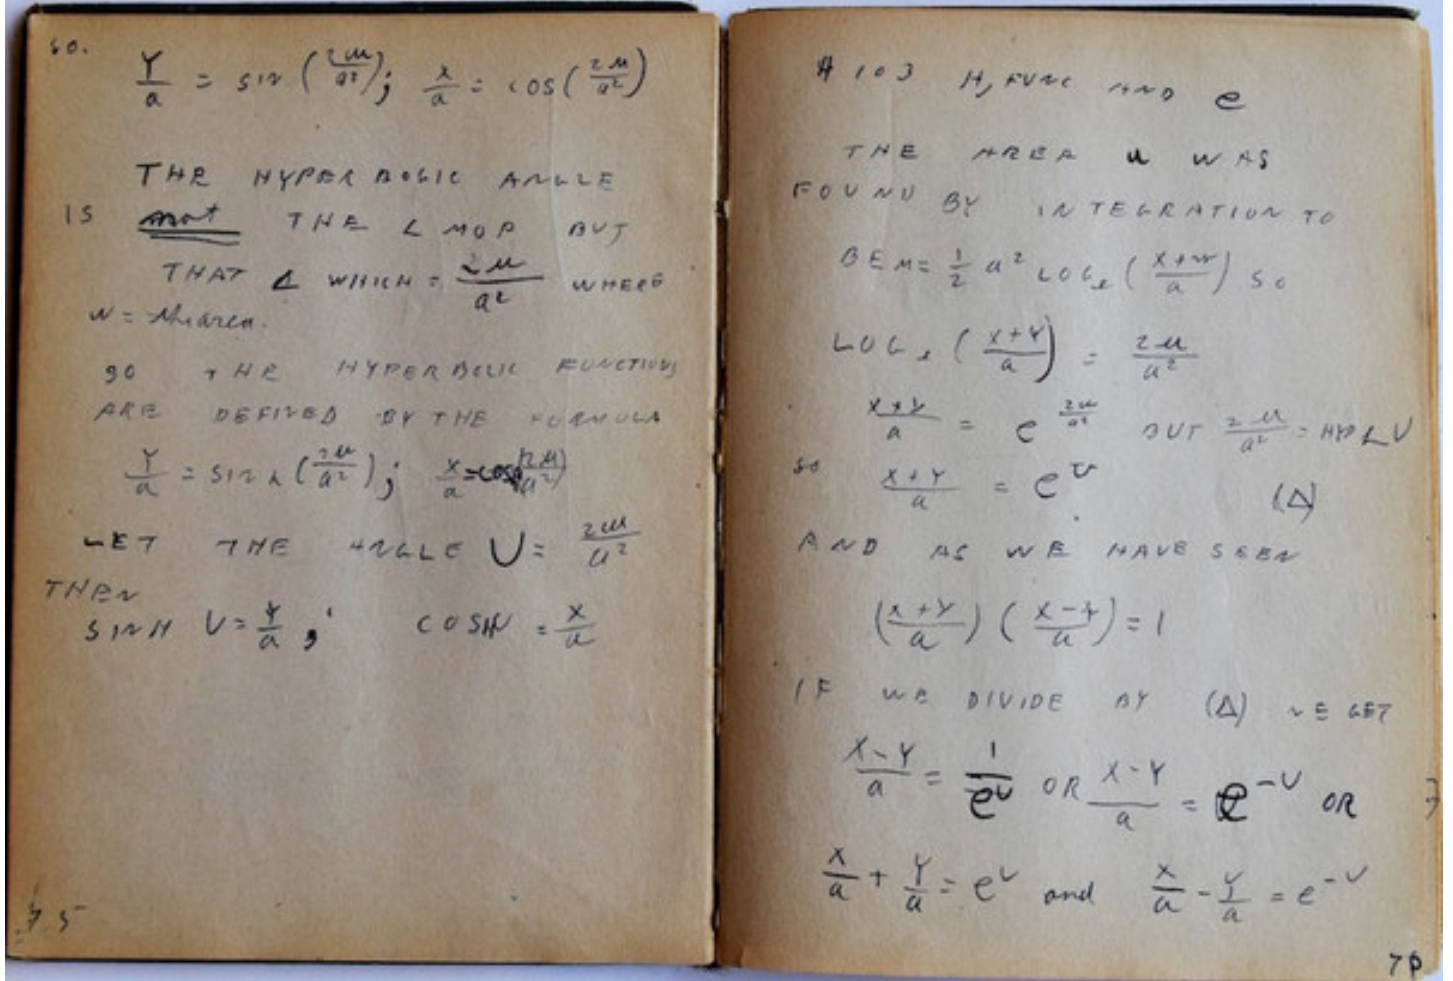 so.
Y/a = sin (2u/a²); x/a = cos(2u/a²)
THE HYPERBOLIC ANGLE
IS not THE ∠ MOP BUT
THAT ∠ WHICH = 2u/a² WHERE
u = the area.
SO THE HYPERBOLIC FUNCTIONS
ARE DEFINED BY THE FORMULA
Y/a = sinh (2u/a²); x/a = cosh(2u/a²)
LET THE ANGLE U = 2u/a²
THEN
SINH U = Y/a ; COSH U = X/a
75
# 103 H, FUNC AND e
THE AREA u WAS
FOUND BY INTEGRATION TO
BE u = 1/2 a² LOGe (x+y/a) SO
LOGe (x+y/a) = 2u/a²
x+y/a = e^2u/a² BUT 2u/a² = HYP ∠ U
so x+y/a = e^U (Δ)
AND AS WE HAVE SEEN
(x+y/a) (x-y/a) = 1
IF WE DIVIDE BY (Δ) WE GET
X-Y/a = 1/e^U OR X-Y/a = e^-U OR
x/a + Y/a = e^U and x/a - Y/a = e^-U